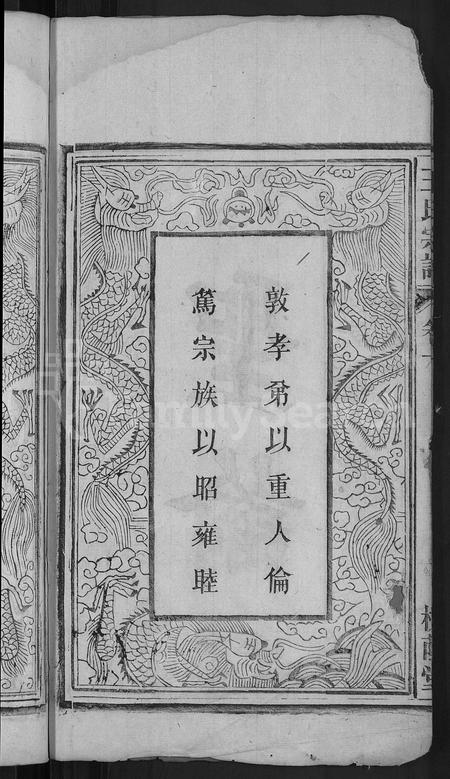 敦孝弟以重人倫
篤宗族以昭雍睦
FamilySearch